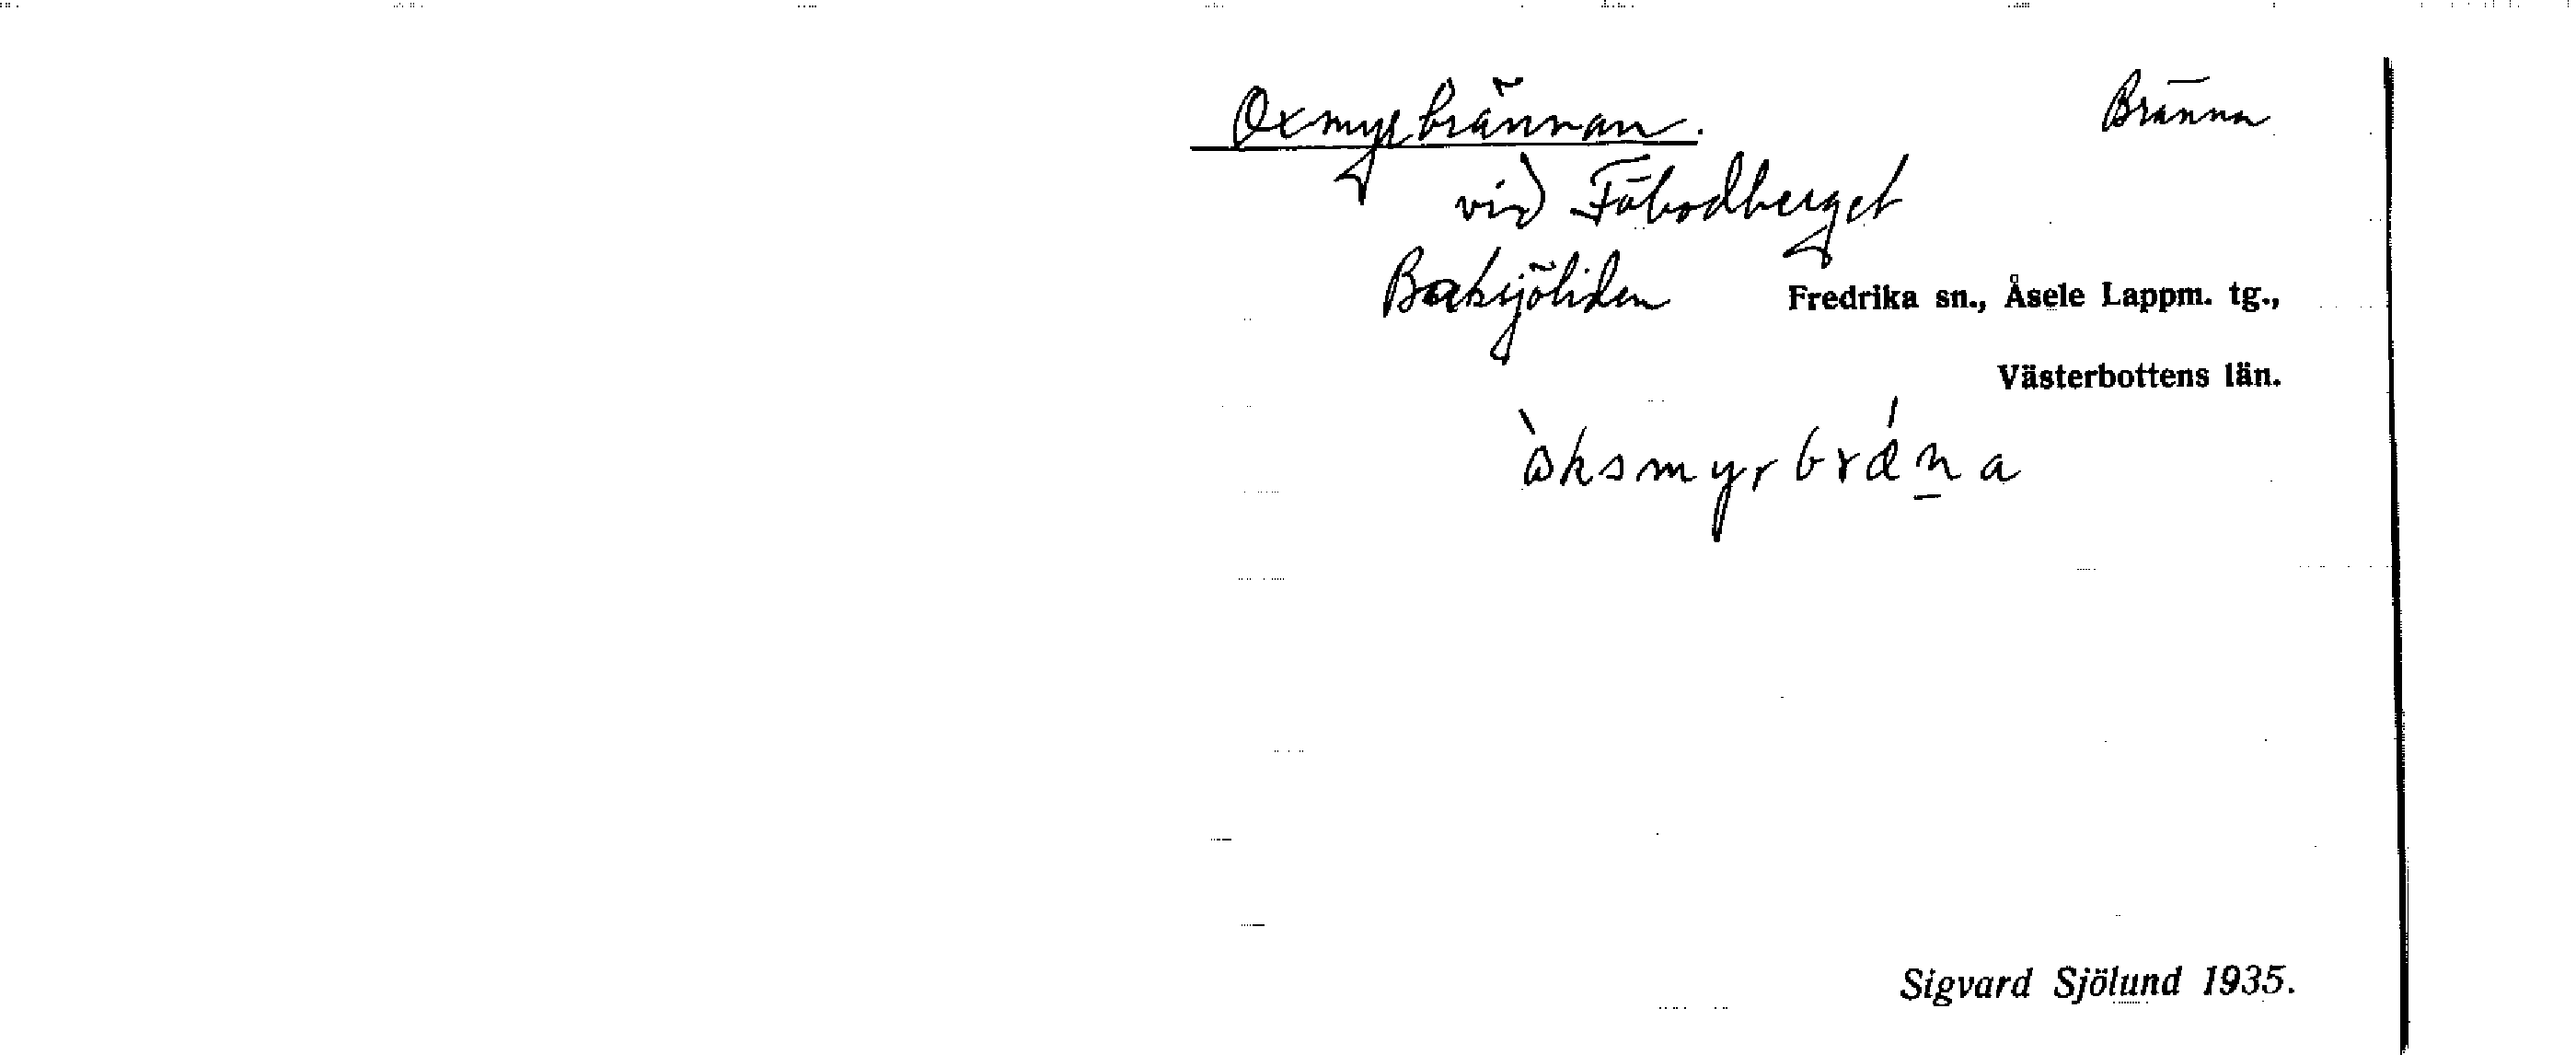 Oxmyrbrännan. Bränna
vid Fäbodberget
Baksjöliden Fredrika sn., Åsele Lappm. tg.,
Västerbottens län.
òksmyrbrán̲a
Sigvard Sjölund 1935.